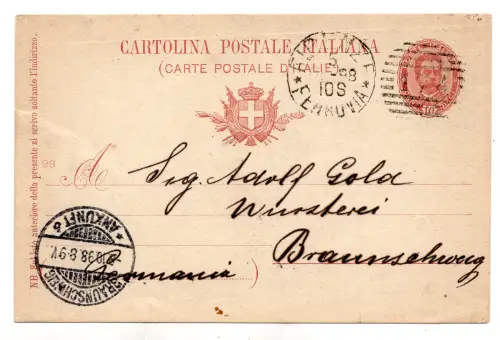 CARTOLINA POSTALE ITALIANA
(CARTE POSTALE D'ITALIE)
FIRENZE
98
10S
FERROVIA
10
NB. Sul lato anteriore della presente si scrive soltanto l'indirizzo.
98
A Sig. Adolf Gold
Wursterei
Braunschweig
Germania
BRAUNSCHWEIG
98.8-9V.
* ANKUNFT 6